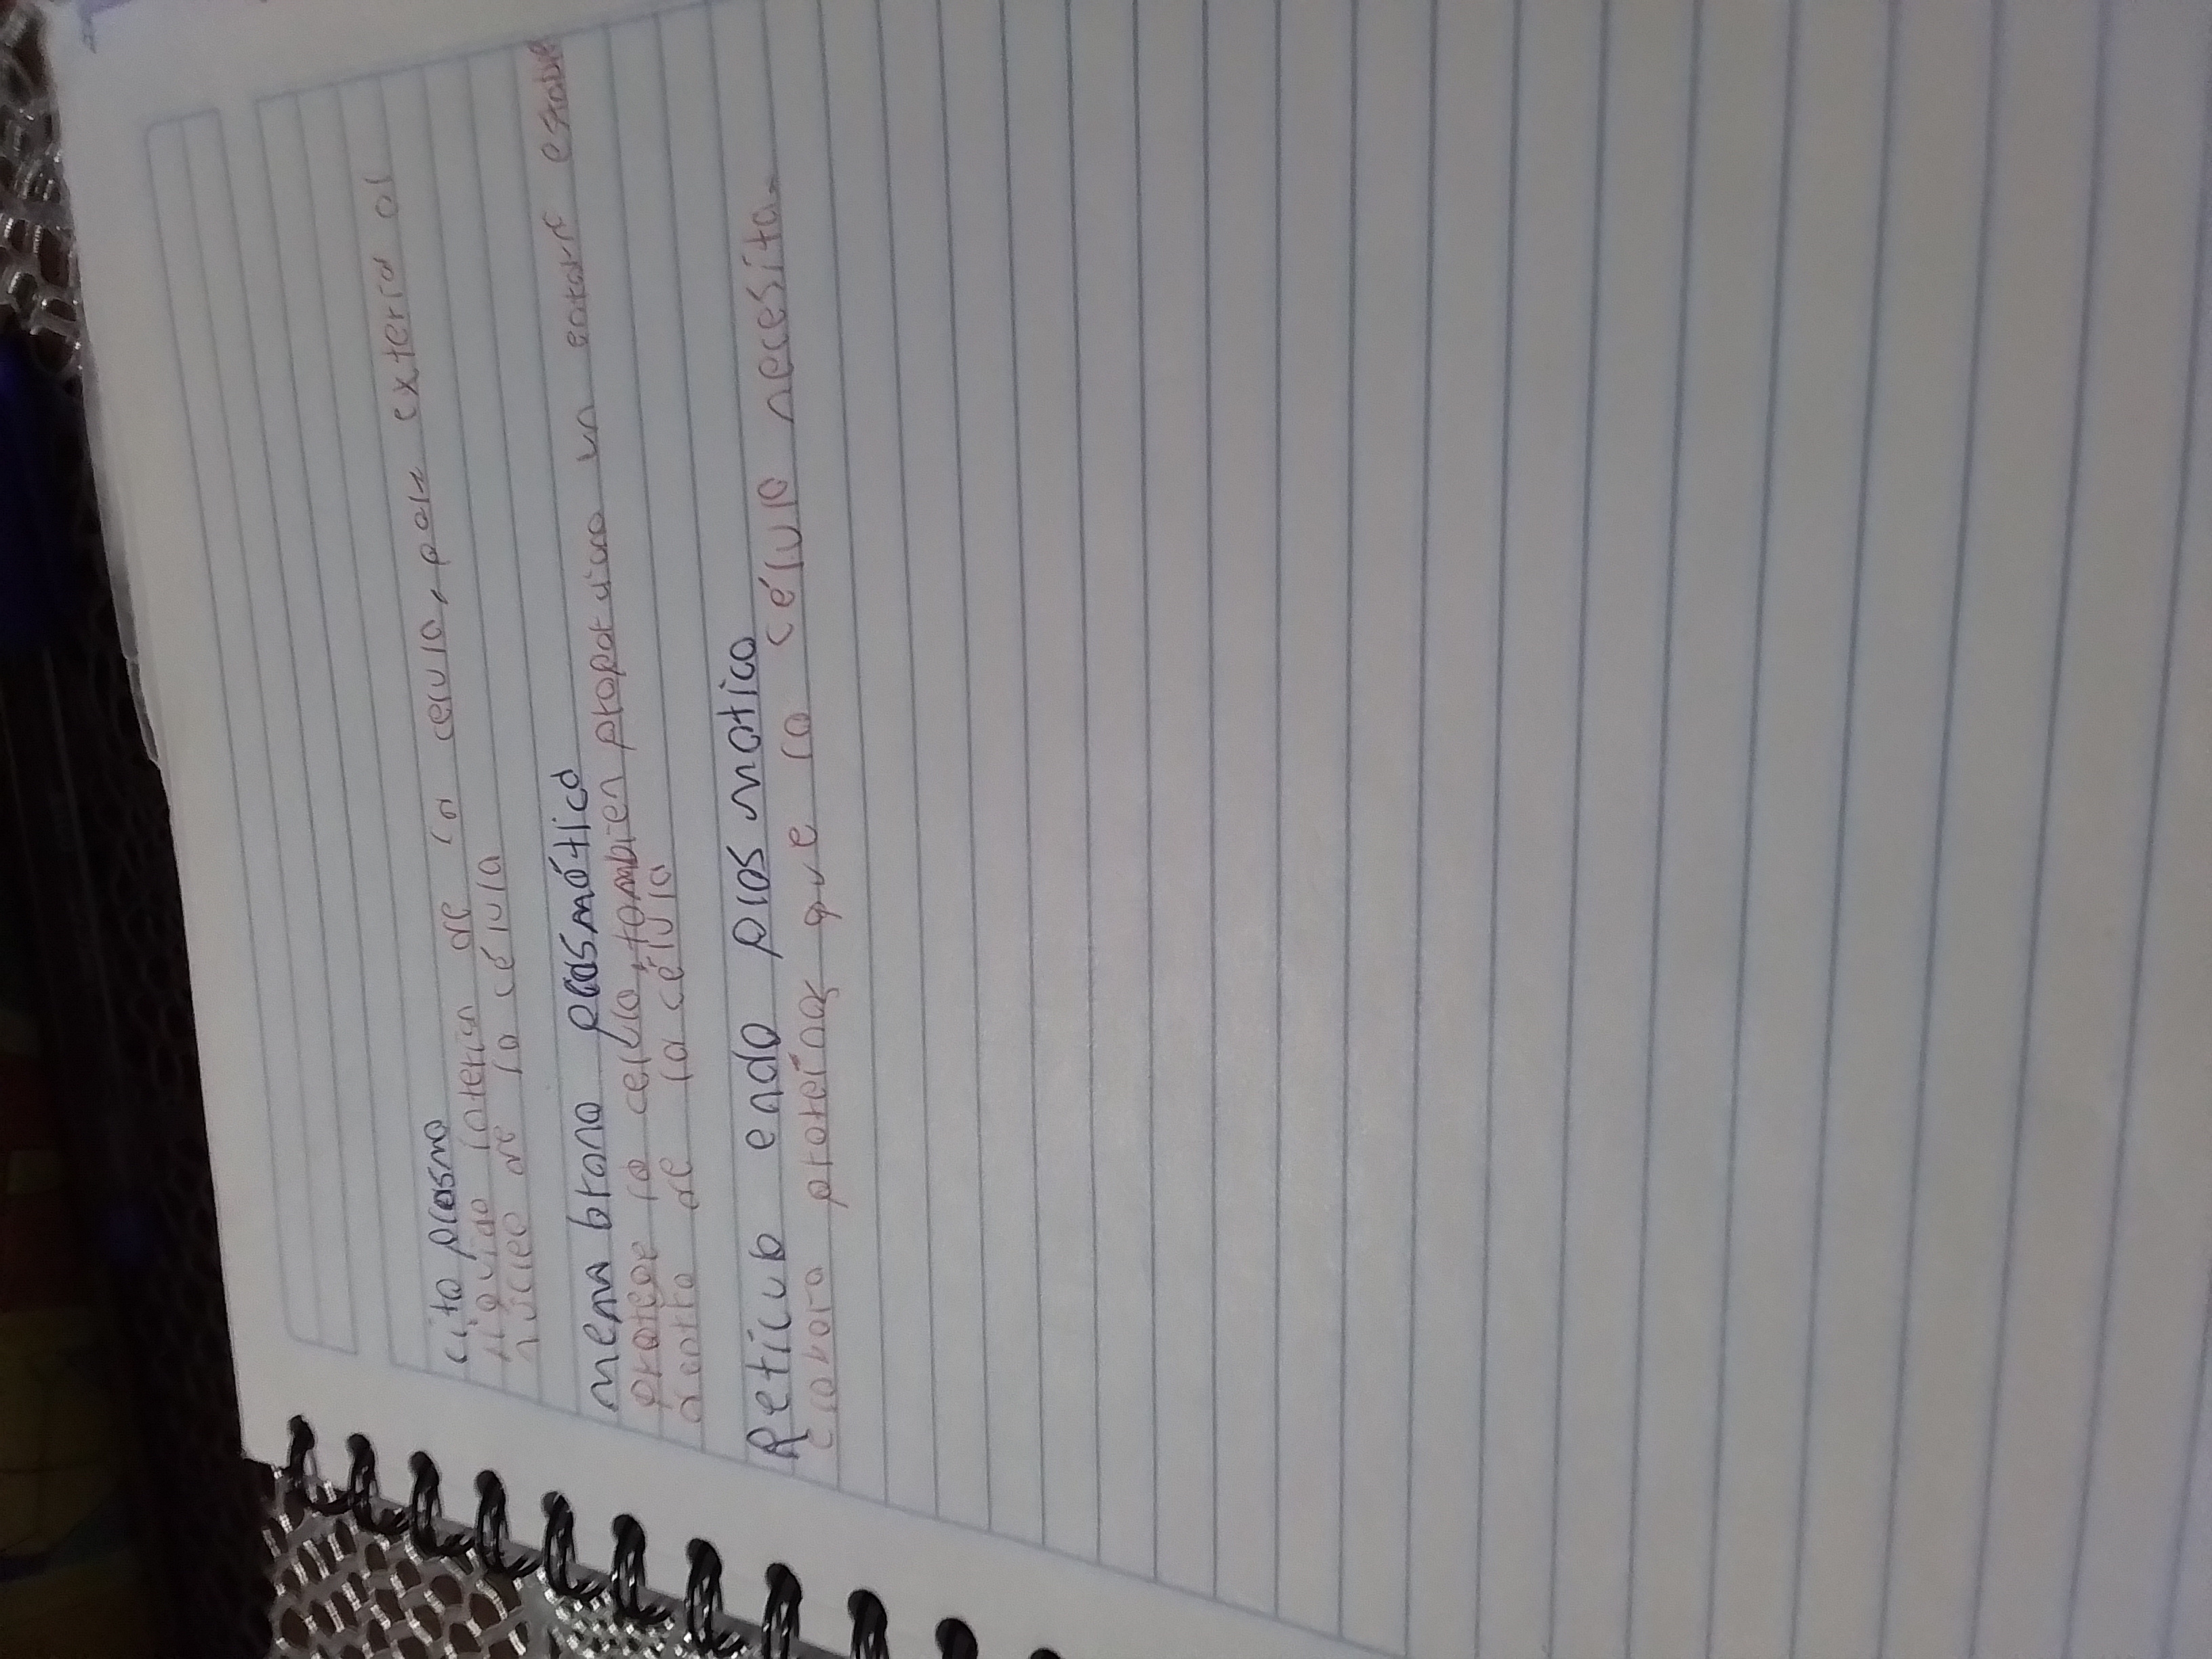 cito plasma
liquido interior de la celula, pare exterid al
núcleo de la célula
mem brana plasmático
protege la celula, tambien proporciona un entorno estable
dentro de la célula
Retículo endo plas matico
proteínas que la célula necesita.